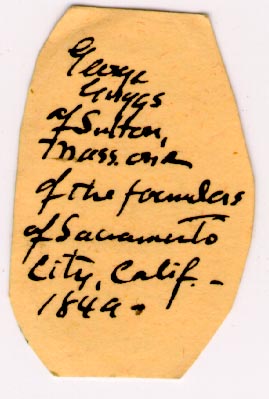 George
Griggs
of Sutton,
Mass. one
of the founders
of Sacramento
City, Calif. -
1849.